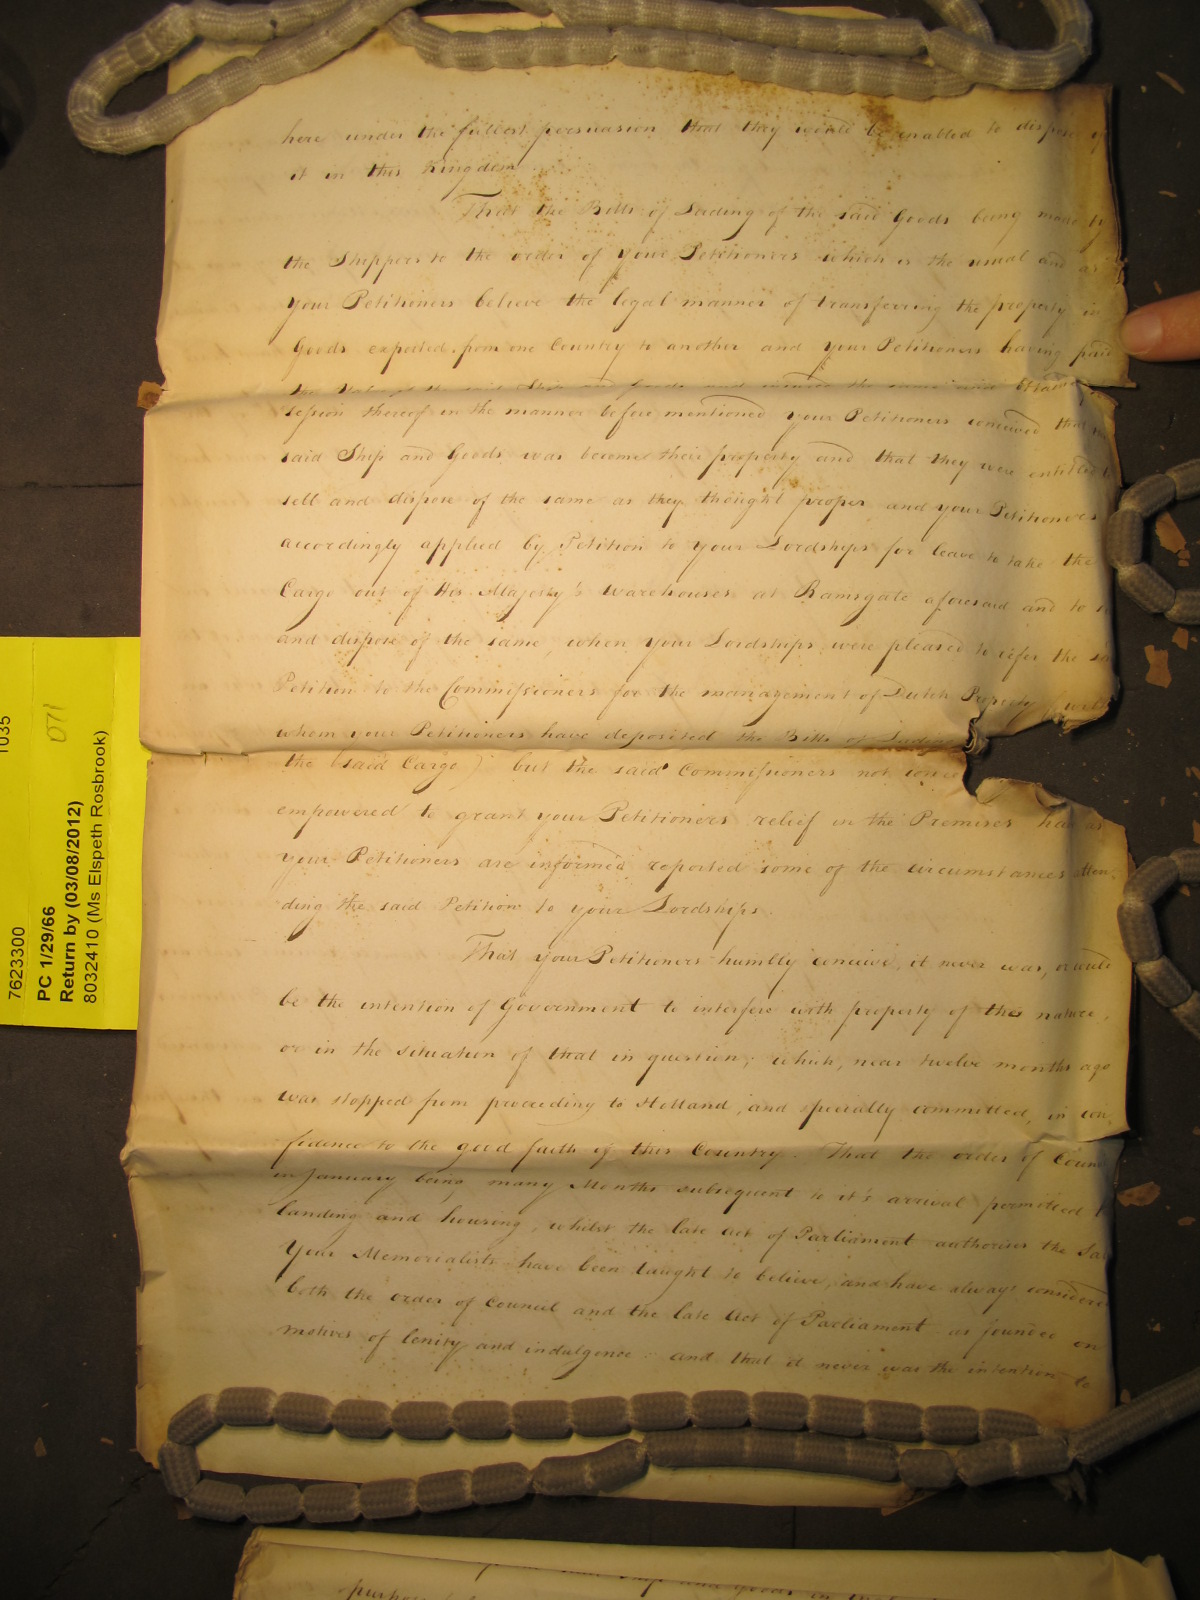 here under the fullest persuasion that they would be enabled to dispose of
it in this Kingdom
That the Bills of Lading of the said Goods being made by
the Shippers to the order of your Petitioners which is the usual and as
your Petitioners believe the legal manner of transferring the property in
Goods exported from one Country to another and your Petitioners having paid
the said Ship and Goods and insured the same and
session thereof in the manner before mentioned your Petitioners conceived that the
said Ship and Goods was become their property and that they were entitled to
sell and dispose of the same as they thought proper and your Petitioners
accordingly applied by Petition to your Lordships for leave to take the
Cargo out of His Majesty's Warehouses at Ramsgate aforesaid and to
and dispose of the same, when your Lordships were pleased to refer the
Petition to the Commissioners for the management of Dutch Property (with
whom your Petitioners have deposited the Bills of Lading
the said Cargo) but the said Commissioners not
empowered to grant your Petitioners relief in the Premises have as
your Petitioners are informed reported some of the circumstances atten-
ding the said Petition to your Lordships
That your Petitioners humbly conceive, it never was, or would
be the intention of Government to interfere with property of this nature,
or in the situation of that in question; which, near twelve months ago
was stopped from proceeding to Holland, and specially committed, in con
fidence to the good faith of this Country. That the order of Council
in January being many Months subsequent to it's arrival permitted
landing and housing, whilst the late Act of Parliament authorises the Sale
Your Memorialists have been taught to believe, and have always considered
both the order of Council and the late Act of Parliament as founded on
motives of lenity and indulgence and that it never was the intention to
7623300
PC 1/29/66
071
Return by (03/08/2012)
8032410 (Ms Elspeth Rosbrook)
1035